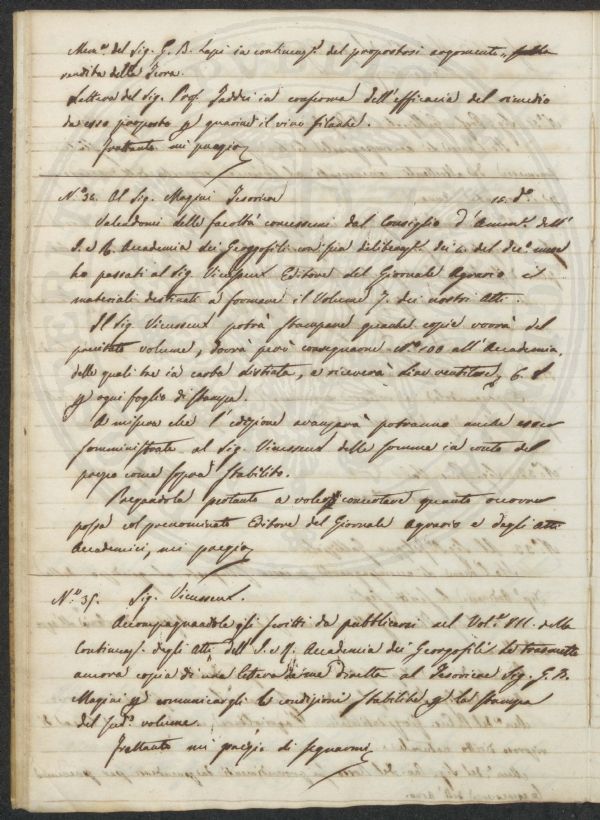 Mem.ª del Sig. G. B. Lapi in continuaz.e del propostosi argomento, sulla
vendita della Fiora.
Lettera del Sig. Prof. Taddei in conferma dell'efficacia del rimedio
da esso proposto p guarire il vino filante.
Frattanto mi pregio
N.º 34. Al Sig. Magini Tesoriere 12. d.º
Valendomi delle facoltà concessemi dal Consiglio d'Ammne. dell'
I. e R. Accademia dei Georgofili con sua deliberazne. dei 4. del dec.º mese
ho passati al Sig. Vieusseux Editore del Giornale Agrario i
materiali destinati a formare il Volume 7. dei nostri Atti.
Il Sig. Vieusseux potrà stampare quante copie vorrà del
precitato volume, dovrà però consegnarne N.º 100 all'Accademia,
delle quali tre in carta distinta, e riceverà
p ogni foglio di stampa.
A misura che l'edizione avanzerà potranno anche esser
somministrate al Sig. Vieusseux delle somme in conto del
prezzo come sopra stabilito.
Pregandola pertanto a voler concertare quanto occorrer
possa col prenominato Editore del Giornale Agrario e degli Atti
Accademici, mi pregio
N.º 35. Sig. Vieusseux.
Accompagnandole gli scritti da pubblicarsi nel Vol.e VII. della
Continuaz. degli Atti dell'I. e R. Accademia dei Georgofili Le trasmetto
ancora copia di una lettera da me diretta al Tesoriere Sig. G. B.
Magini p comunicargli le condizioni stabilite p la stampa
del sud.º volume.
Frattanto mi pregio di segnarmi